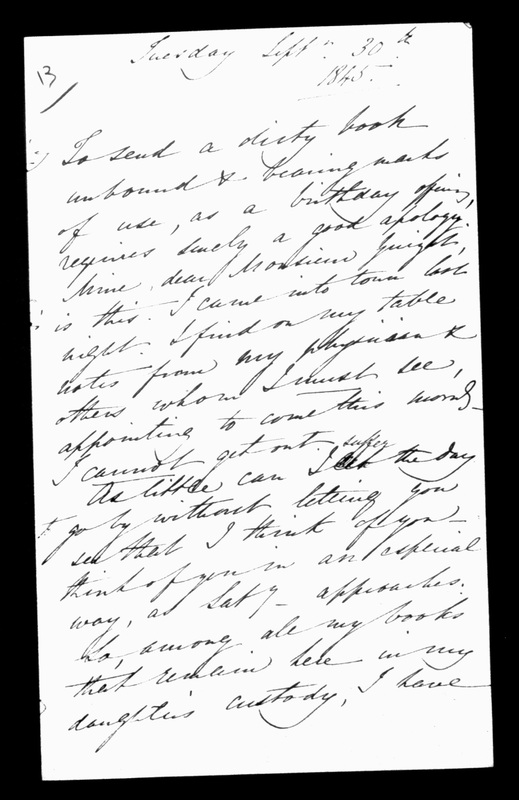 13
Tuesday Sept. 30th
1845.
To send a dirty book
unbound & bearing marks
of use, as a birthday offering,
requires surely a good apology.
Mine, dear Monsieur
is this. I came into town last
night. I find on my table
notes from my physician &
others whom I must see,
appointing to come this morng
I cannot get out.
As little can I suffer the day
go by without letting you
see that I think of you
think of you in an especial
way, as Saty approaches.
So, among all my books
that remain here in my
daughters custody, I have